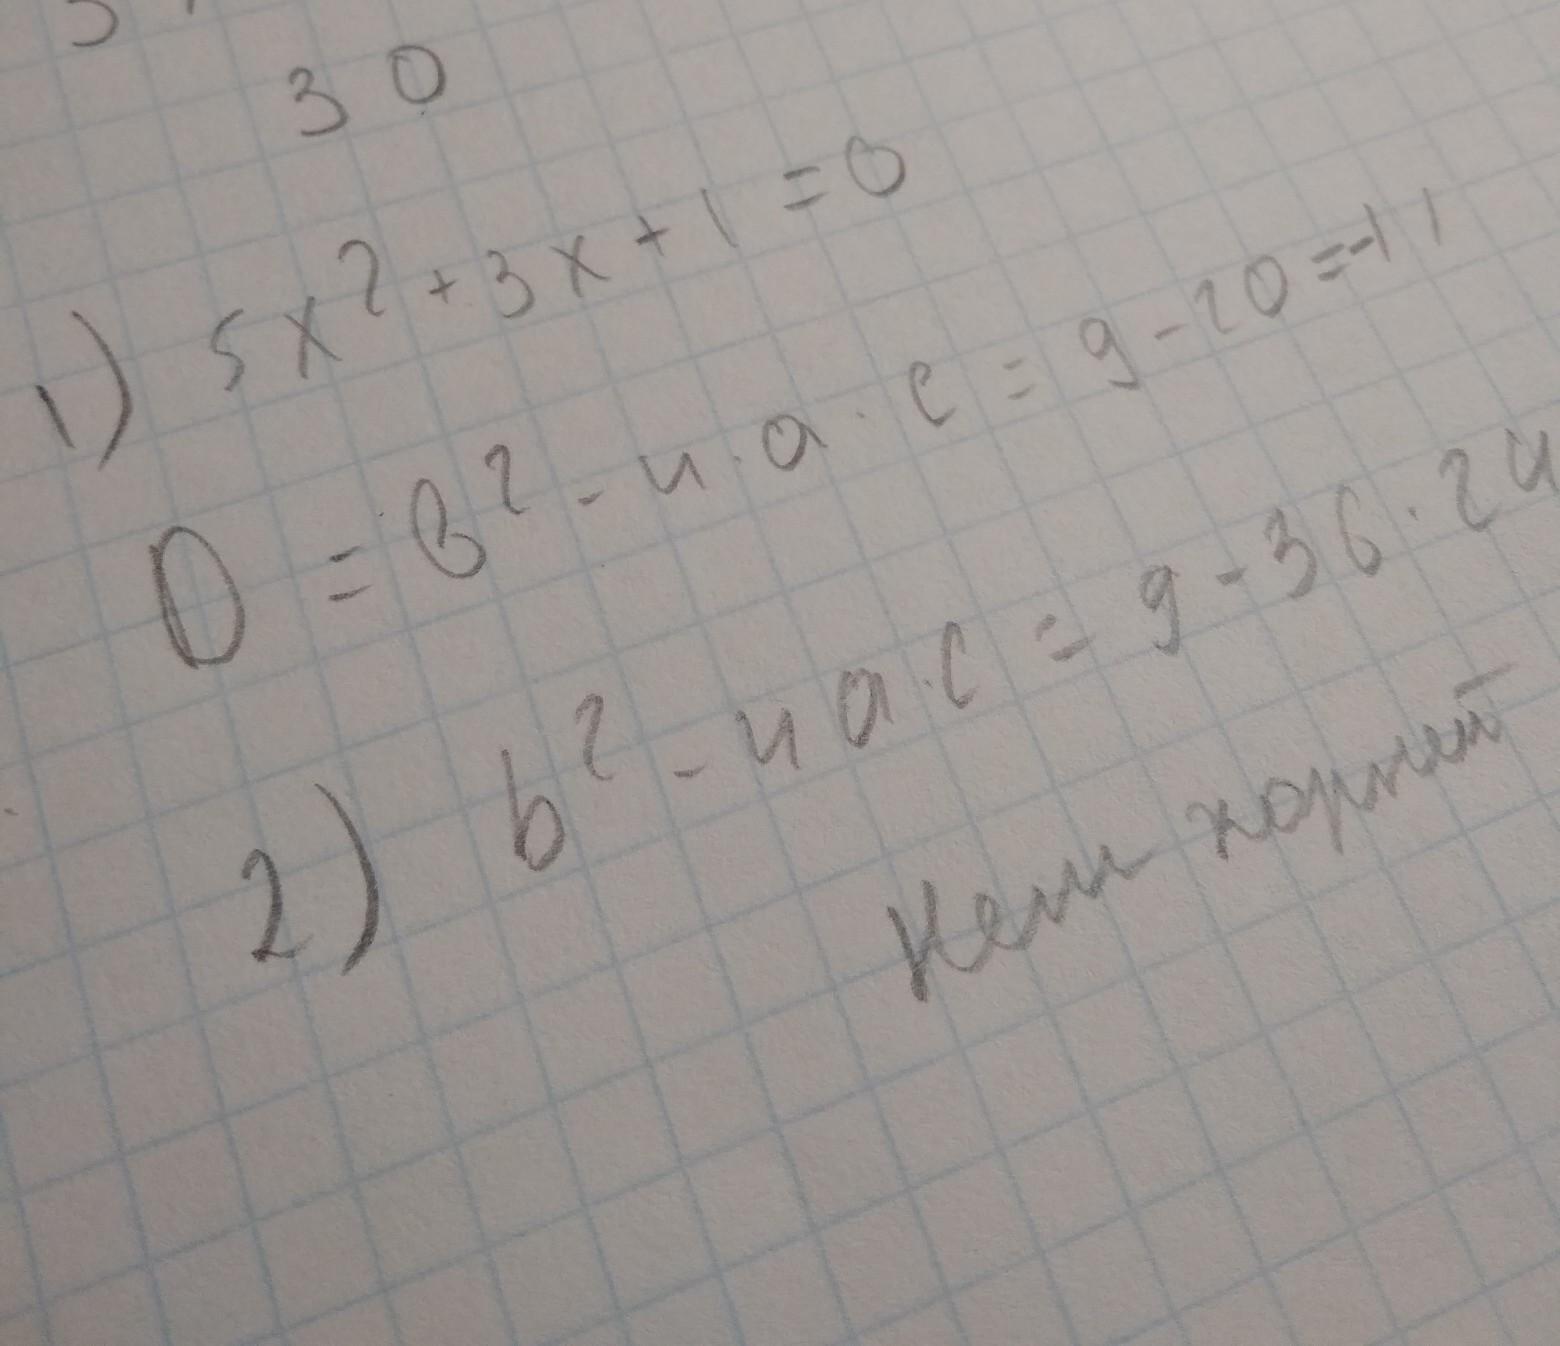 30
1) 5x² + 3x + 1 = 0
D = b² - 4 · a · c = 9 - 20 = -11
2) b² - 4a · c = 9 - 36 · 24
Нет корней